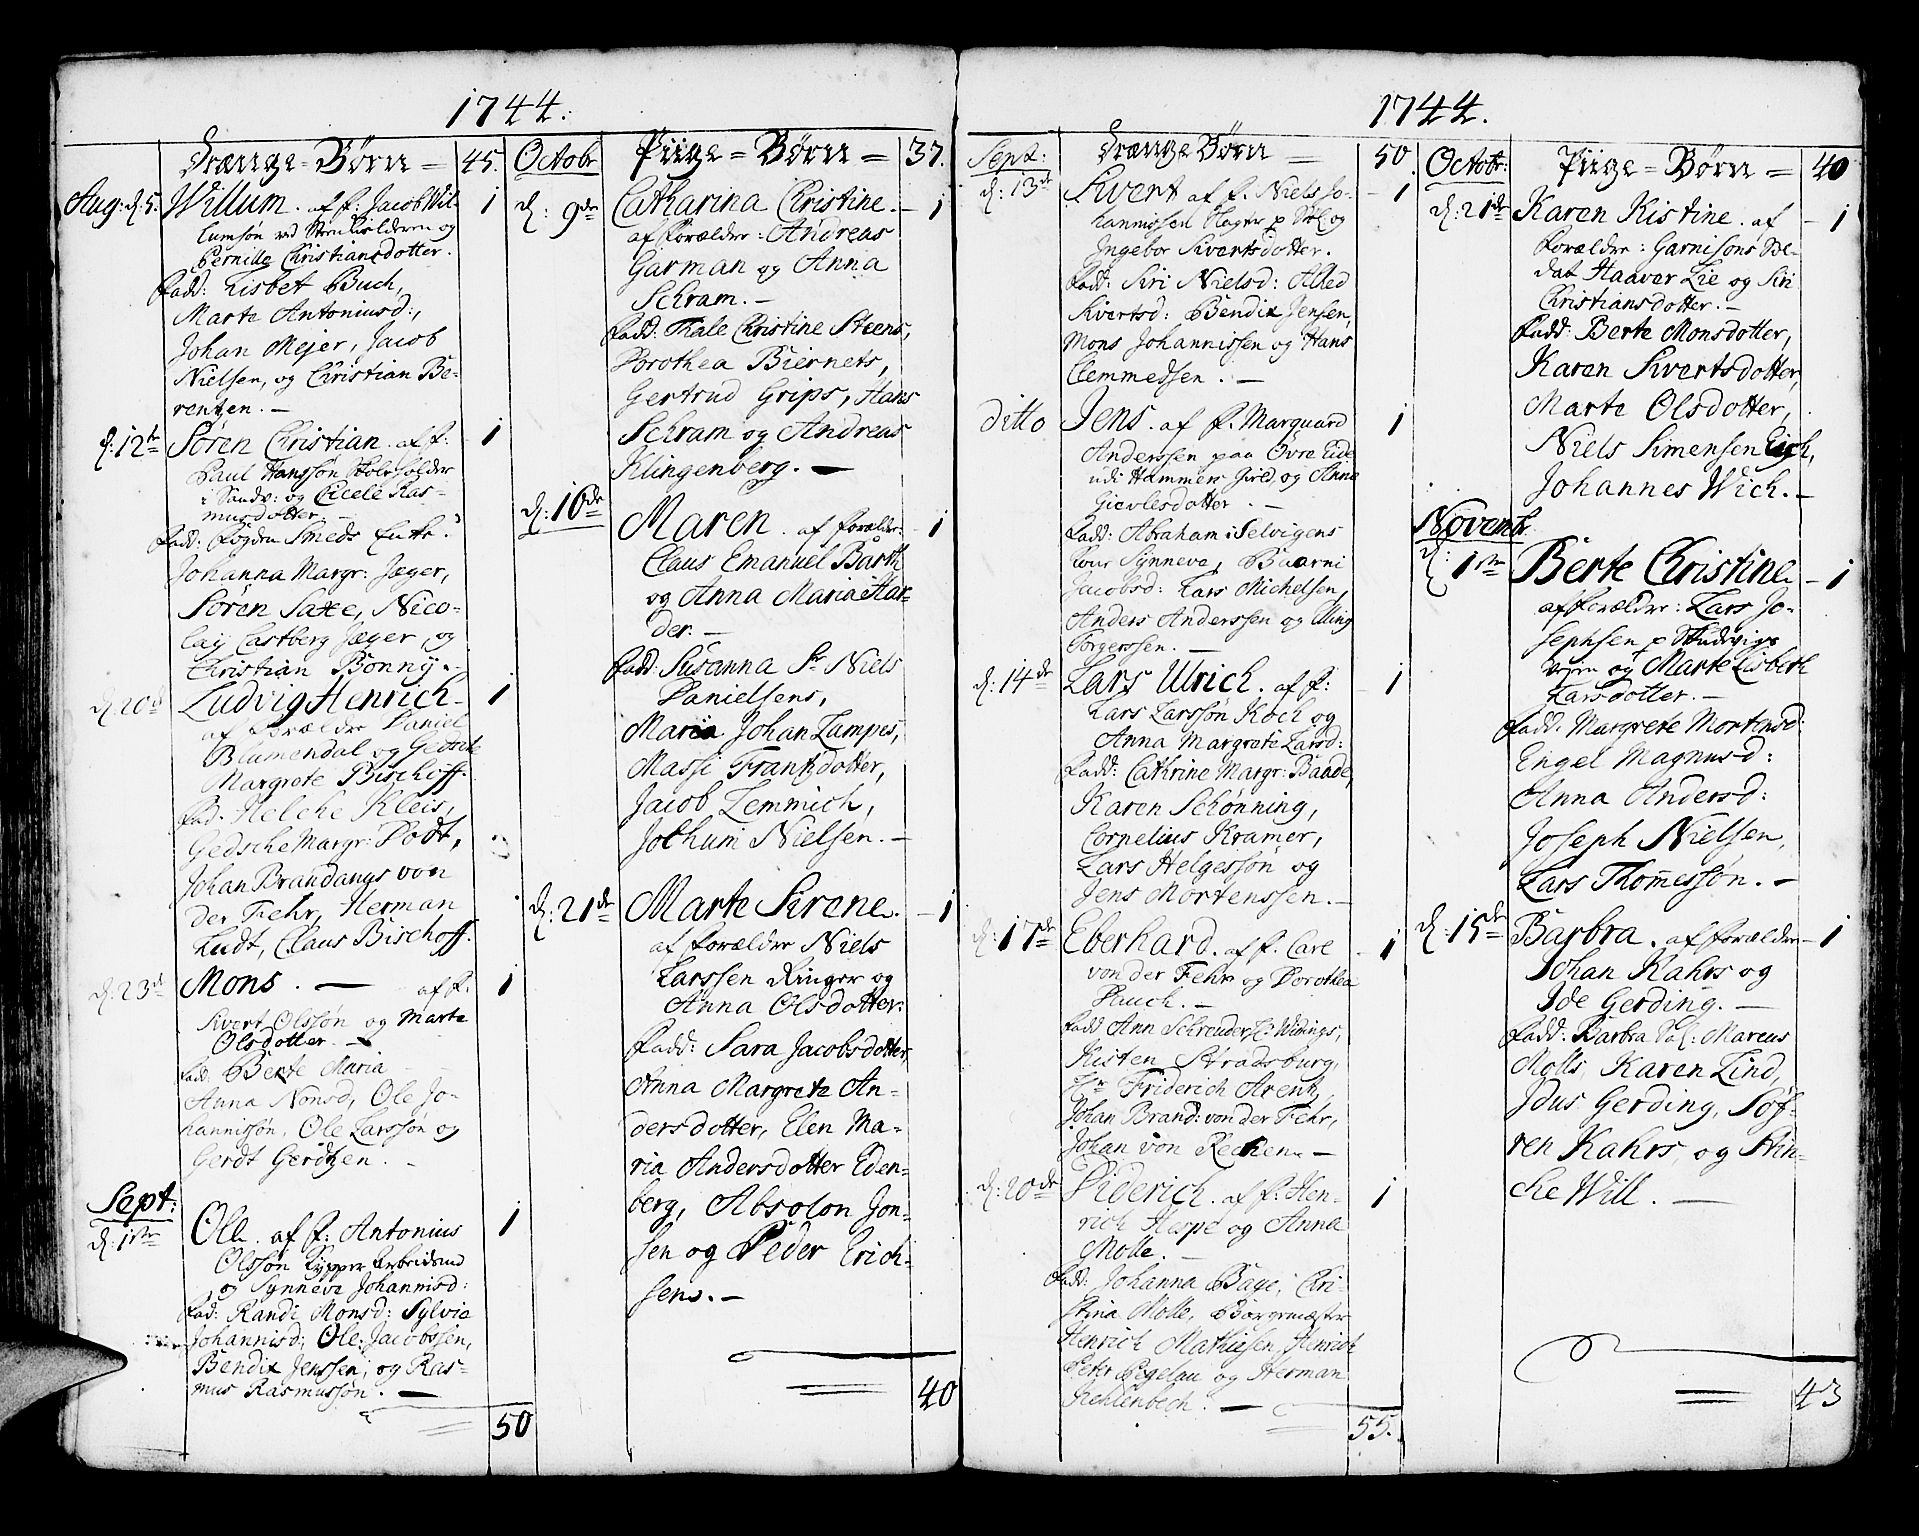 1744.
Drænge-Børn = 45.
Aug: d. 5. Willum. af F: Jacob Wil- 1
lumsøn ved Steenkielderen og
Pernille Christiansdotter.
Fadd: Lisbet Buch,
Marte Antoniusd:,
Johan Mejer, Jacob
Nielsen, og Christian Be-
rentzen. —
d: 12te Søren Christian. af F: 1
Paul Hanssøn Skoeholder
i Sandv: og Cicele Ras-
musdotter —
Fadd: Smeds Enke
Johanna Margr: Jæger,
Søren Saxe, Nico-
laij Castberg Jæger, og
Christian Bonny. -
d. 20de Ludvig Henrich - 1
af Forældre Daniel
Blumendal og Gedsche
Margrete Bischoff.
Fad. Helche Kleis,
Gedsche Margr: Podt,
Johan Brandanus von
der Fehr, Herman
Ludt, Claus Bischoff.
d. 23de Mons. — af F. 1
Sivert Olssøn og Marte
Olsdotter. —
Fadd: Berte Maria
Anna Monsd, Ole Jo-
hannissøn, Ole Larssøn og
Gerdt Gerdtzen. -
Sept:
d. 1ste Ole. af F: Antonius 1
Olssøn Kypper Arbeidsmd
og Synneve Johannisd:
Fad: Randi Monsd: Sylvie
Johannisd: Ole Jacobssen,
Bendix Jenssen, og Ras-
mus Rasmussøn. —
50
Octobr Piige-Børn = 37.
d: 9de Catharina Christine. - 1
af Forælder: Andreas
Garman og Anna
Schram. —
Fadd: Thale Christine Steens,
Dorothea Biernets,
Gertrud Grips, Hans
Schram og Andreas
Klingenberg. —
d: 16de Maren. af Forælder: - 1
Claus Emanuel Barth
og Anna Maria Har-
der. —
Fadd: Susanna Sr Niels
Danielsens,
Maria Johan Lampes,
Massi Frantzdotter,
Jacob Lemmich,
Jochum Nielsen. —
d: 21de Marte Sirene. - 1
af Forældre Niels
Larssen Ringer og
Anna Olsdotter:
Fadd: Sara Jacobsdotter,
Anna Margrete An-
dersdotter, Elen Ma-
ria Andersdotter Eden-
berg, Absolon Jon-
sen og Peder Erich-
sen. —
40
1744.
Sept: Drænge Børn — 50
d: 13de Sivert af F. Niels Jo- - 1
hannissen Slagter p Stol og
Ingebor Sivertsdotter.
Fadd: Siri Nielsd: Alhed
Sivertsd: Bendix Jensen,
Mons Johannissen og Hans
Clemmedsen. —
ditto Jens. af F. Marquard 1
Anderssen paa Øvre Eide
udi Hammers Gield, og Anne
Gievlesdotter. —
Fadd: Abraham i Selvigens
Kone Synneve, Baarni
Jacobsd: Lars Michelsen,
Anders Anderssen og Elling
Torgerssen. —
d: 14de Lars Ulrich. af F: - 1
Lars Larssøn Koch og
Anna Margrete Larsd:
Fadd: Cathrine Margr: Baade,
Karen Schønning,
Cornelius Kramer,
Lars Helgessøn og
Jens Mortenssen. —
d: 17de Eberhard. af F. Care - 1
von der Fehr og Dorothea
Pauch. —
Fadd Ann Schreuder, Widings,
Kisten Stradsburg,
Hr Friderich Arentz,
Johan Brand: von der Fehr,
Johan von Recken. —
d: 20de Diderich. af F: Hen- 1
rich Hespe og Anna
Molle. —
Fadd: Johanna Bage, Chri-
stina Molle, Borgemæster
Henrich Mathiesen, Henrich
Peter Pegelau og Herman
Kehlenbech. —
55.
Octobr: Piige-Børn = 40
d: 21de Karen Kistine. af - 1
Forældre: Garnisons Sol-
dat Haaver Lie og Siri
Christiansdotter. —
Fadd: Berte Monsdotter,
Karen Sivertsdotter,
Marte Olsdotter,
Niels Simensen Eich,
Johannes Wich. —
Novembr
d: 1ste Berte Christine. - 1
af Forældre: Lars Jo-
sephsen p Studvigs
vejen og Marte Lisbeth
Larsdotter. —
Fadd: Margrete Mortensd:
Engel Magnusd:
Anna Andersd:
Joseph Nielsen,
Lars Thommessøn. —
d: 15de Barbra. af Forældre - 1
Johan Kahrs og
Ide Gerding. —
Fadd: Barbra Marcus
Molls, Karen Lind,
Idus Gerding, Søf-
ren Kahrs, og Hin-
che Will. —
43